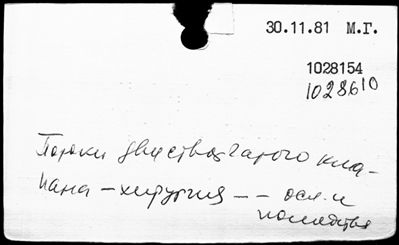 30.11.81 М.Г.
1028154
1028610
Пороки двустворчатого кла-
пана – хирургия – – осл. и
последствия